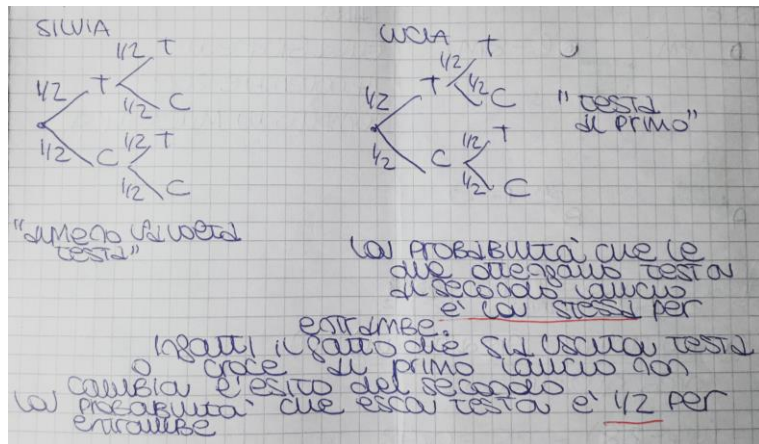 SILVIA
1/2 T
1/2 T
1/2 C
1/2 T
1/2 C
1/2 C
"almeno una volta
testa"
LUCIA
1/2 T
1/2 T
1/2 C
1/2 T
1/2 C
1/2 C
"testa
al primo"
La probabilità che le
due ottengano testa
al secondo lancio
è la stessa per
entrambe.
Infatti il fatto che sia uscita testa
o croce al primo lancio non
cambia l'esito del secondo
La probabilità che esca testa è 1/2 per
entrambe